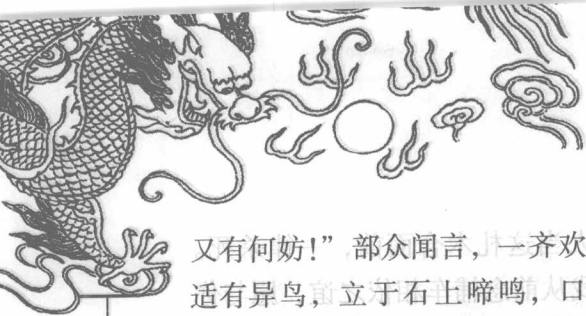 又有何妨!”部众闻言,一齐欢
适有异鸟,立于石上啼鸣,口